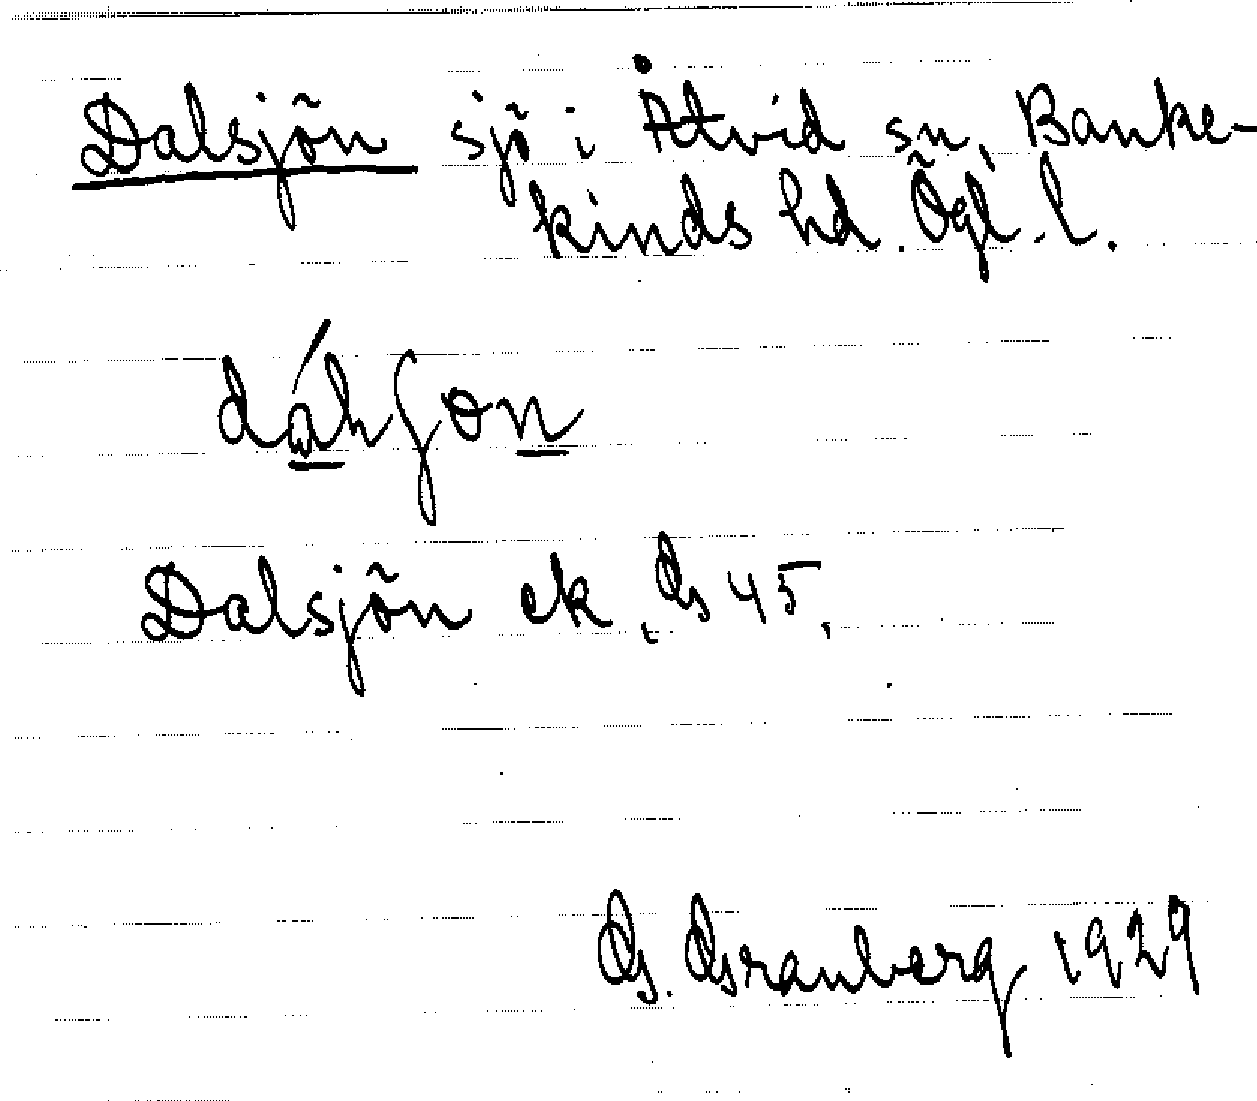 Dalsjön sjö i Åtvid sn, Banke-
kinds hd. Ögl. l.
Dalsjön ek. G 45.
G. Granberg 1929